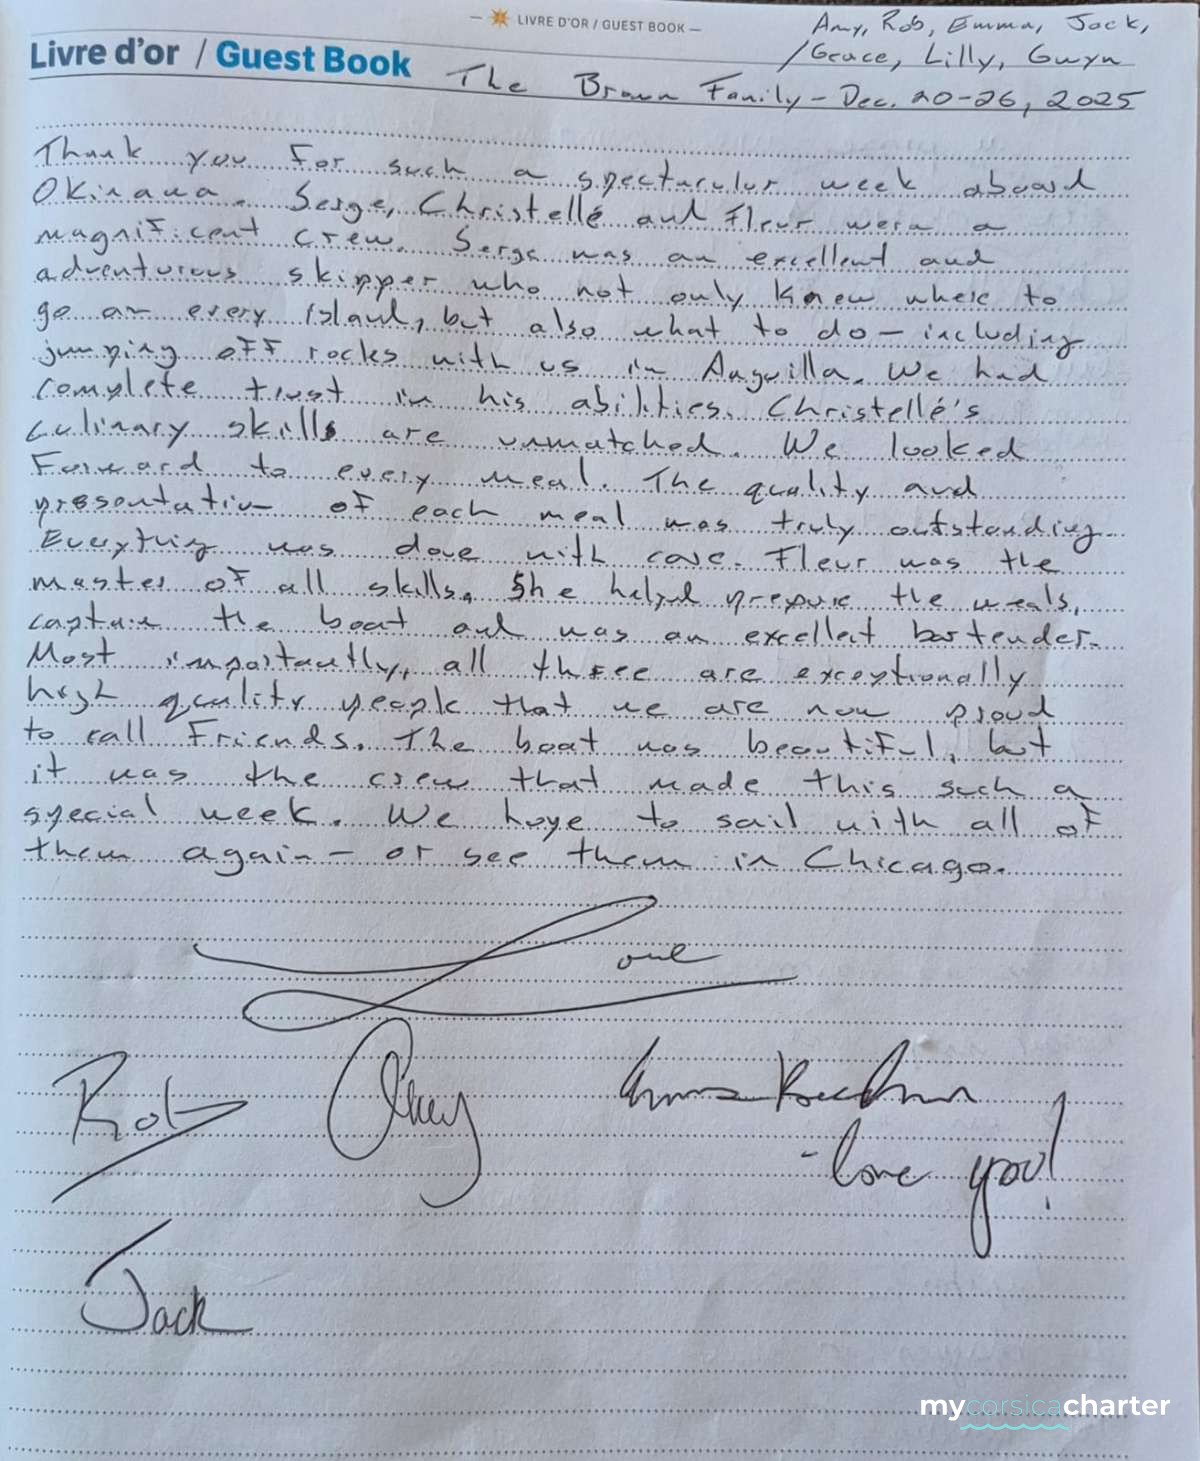 LIVRE D'OR / GUEST BOOK
Amy, Rob, Emma, Jack,
Livre d'or / Guest Book
/Grace, Lilly, Gwyn
The Braun Family - Dec. 20-26, 2025
Thank you for such a spectacular week aboard
Okinawa. Serge, Christellé and Fleur were a
magnificent crew. Serge was an excellent and
adventurous skipper who not only knew where to
go on every island, but also what to do - including
jumping off rocks with us in Anguilla. We had
complete trust in his abilities. Christellé's
culinary skills are unmatched. We looked
forward to every meal. The quality and
presentation of each meal was truly outstanding.
Everything was done with care. Fleur was the
master of all skills. She helped prepare the meals,
captain the boat and was an excellent bartender.
Most importantly, all three are exceptionally
high quality people that we are now proud
to call friends. The boat was beautiful, but
it was the crew that made this such a
special week. We hope to sail with all of
them again - or see them in Chicago.
Love
Rob Amy Emma
- love you!
Jack
mycorsicacharter